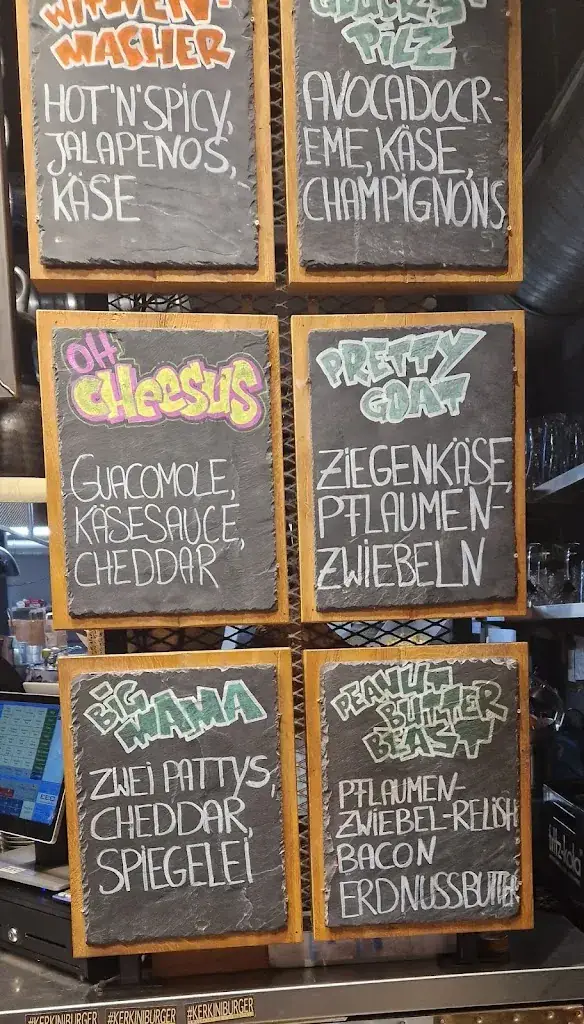 WITWEN-
MACHER
HOT'N'SPICY,
JALAPENOS,
KÄSE
GLÜCKS-
PILZ
AVOCADOCR-
EME, KÄSE,
CHAMPIGNONS
OH
CHEESUS
GUACOMOLE,
KÄSESAUCE,
CHEDDAR
PRETTY
GOAT
ZIEGENKÄSE,
PFLAUMEN-
ZWIEBELN
BIG
MAMA
ZWEI PATTYS,
CHEDDAR,
SPIEGELEI
PEANUT
BUTTER
BEAST
PFLAUMEN-
ZWIEBEL-RELISH
BACON
ERDNUSSBUTTER
fritz-kola
#KERKINIBURGER #KERKINIBURGER #KERKINIBURGER